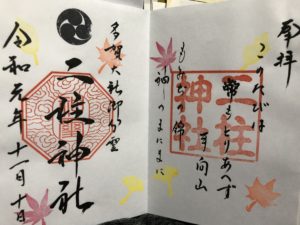 奉拝
このたびは
幣もとりあへず
手向山
もみぢの錦
神のまにまに
二柱
神社
多賀大社御分霊
二柱神社
令和元年十一月十日